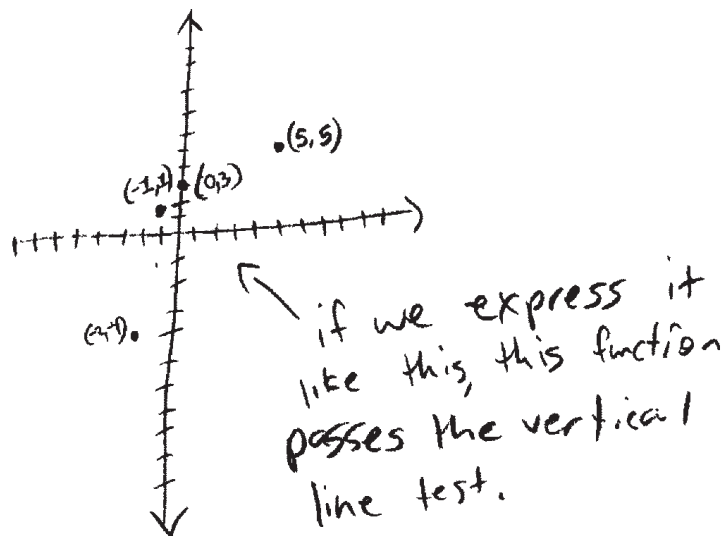 (5,5)
(-1,1) (0,3)
if we express it
like this, this function
passes the vertical
line test.